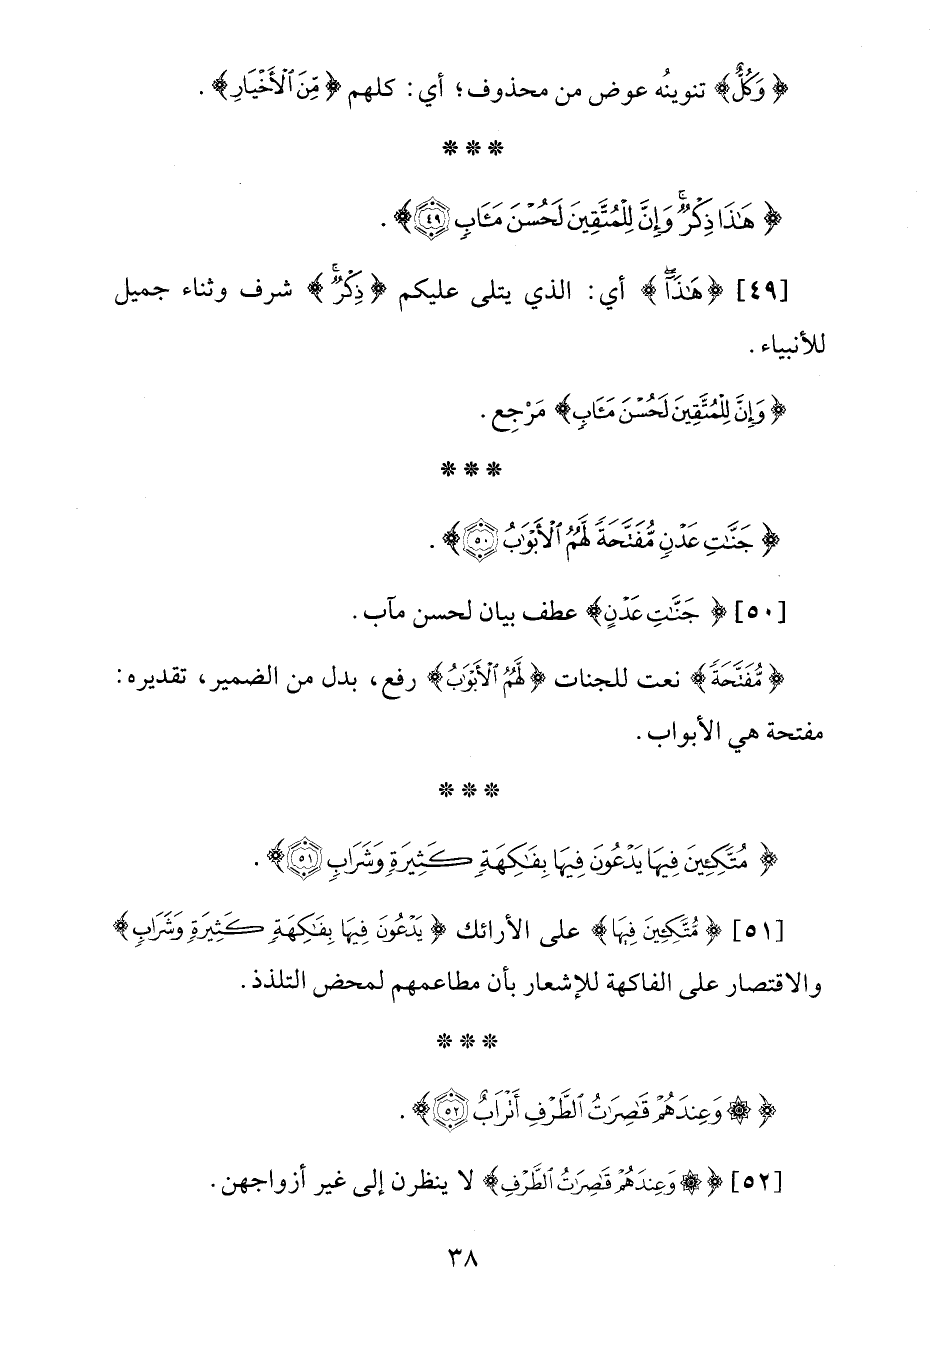 ﴿وَكُلٌّ﴾ تنوينُه عوض من محذوف؛ أي: كلهم ﴿مِّنَ ٱلْأَخْيَارِ﴾ .
* * *
﴿هَٰذَا ذِكْرٌ ۚ وَإِنَّ لِلْمُتَّقِينَ لَحُسْنَ مَـَٔابٍ ٤٩﴾ .
[٤٩] ﴿هَٰذَا﴾ أي: الذي يتلى عليكم ﴿ذِكْرٌ ۚ﴾ شرف وثناء جميل
للأنبياء .
﴿وَإِنَّ لِلْمُتَّقِينَ لَحُسْنَ مَـَٔابٍ﴾ مَرْجِع .
* * *
﴿جَنَّٰتِ عَدْنٍ مُّفَتَّحَةً لَّهُمُ ٱلْأَبْوَٰبُ ٥٠﴾ .
[٥٠] ﴿جَنَّٰتِ عَدْنٍ﴾ عطف بيان لحسن مآب .
﴿مُّفَتَّحَةً﴾ نعت للجنات ﴿لَّهُمُ ٱلْأَبْوَٰبُ﴾ رفع، بدل من الضمير، تقديره:
مفتحة هي الأبواب .
* * *
﴿مُتَّكِـِٔينَ فِيهَا يَدْعُونَ فِيهَا بِفَٰكِهَةٍ كَثِيرَةٍ وَشَرَابٍ ٥١﴾ .
[٥١] ﴿مُتَّكِـِٔينَ فِيهَا﴾ على الأرائك ﴿يَدْعُونَ فِيهَا بِفَٰكِهَةٍ كَثِيرَةٍ وَشَرَابٍ﴾
والاقتصار على الفاكهة للإشعار بأن مطاعمهم لمحض التلذذ .
* * *
﴿۞ وَعِندَهُمْ قَٰصِرَٰتُ ٱلطَّرْفِ أَتْرَابٌ ٥٢﴾ .
[٥٢] ﴿۞ وَعِندَهُمْ قَٰصِرَٰتُ ٱلطَّرْفِ﴾ لا ينظرن إلى غير أزواجهن .
٣٨